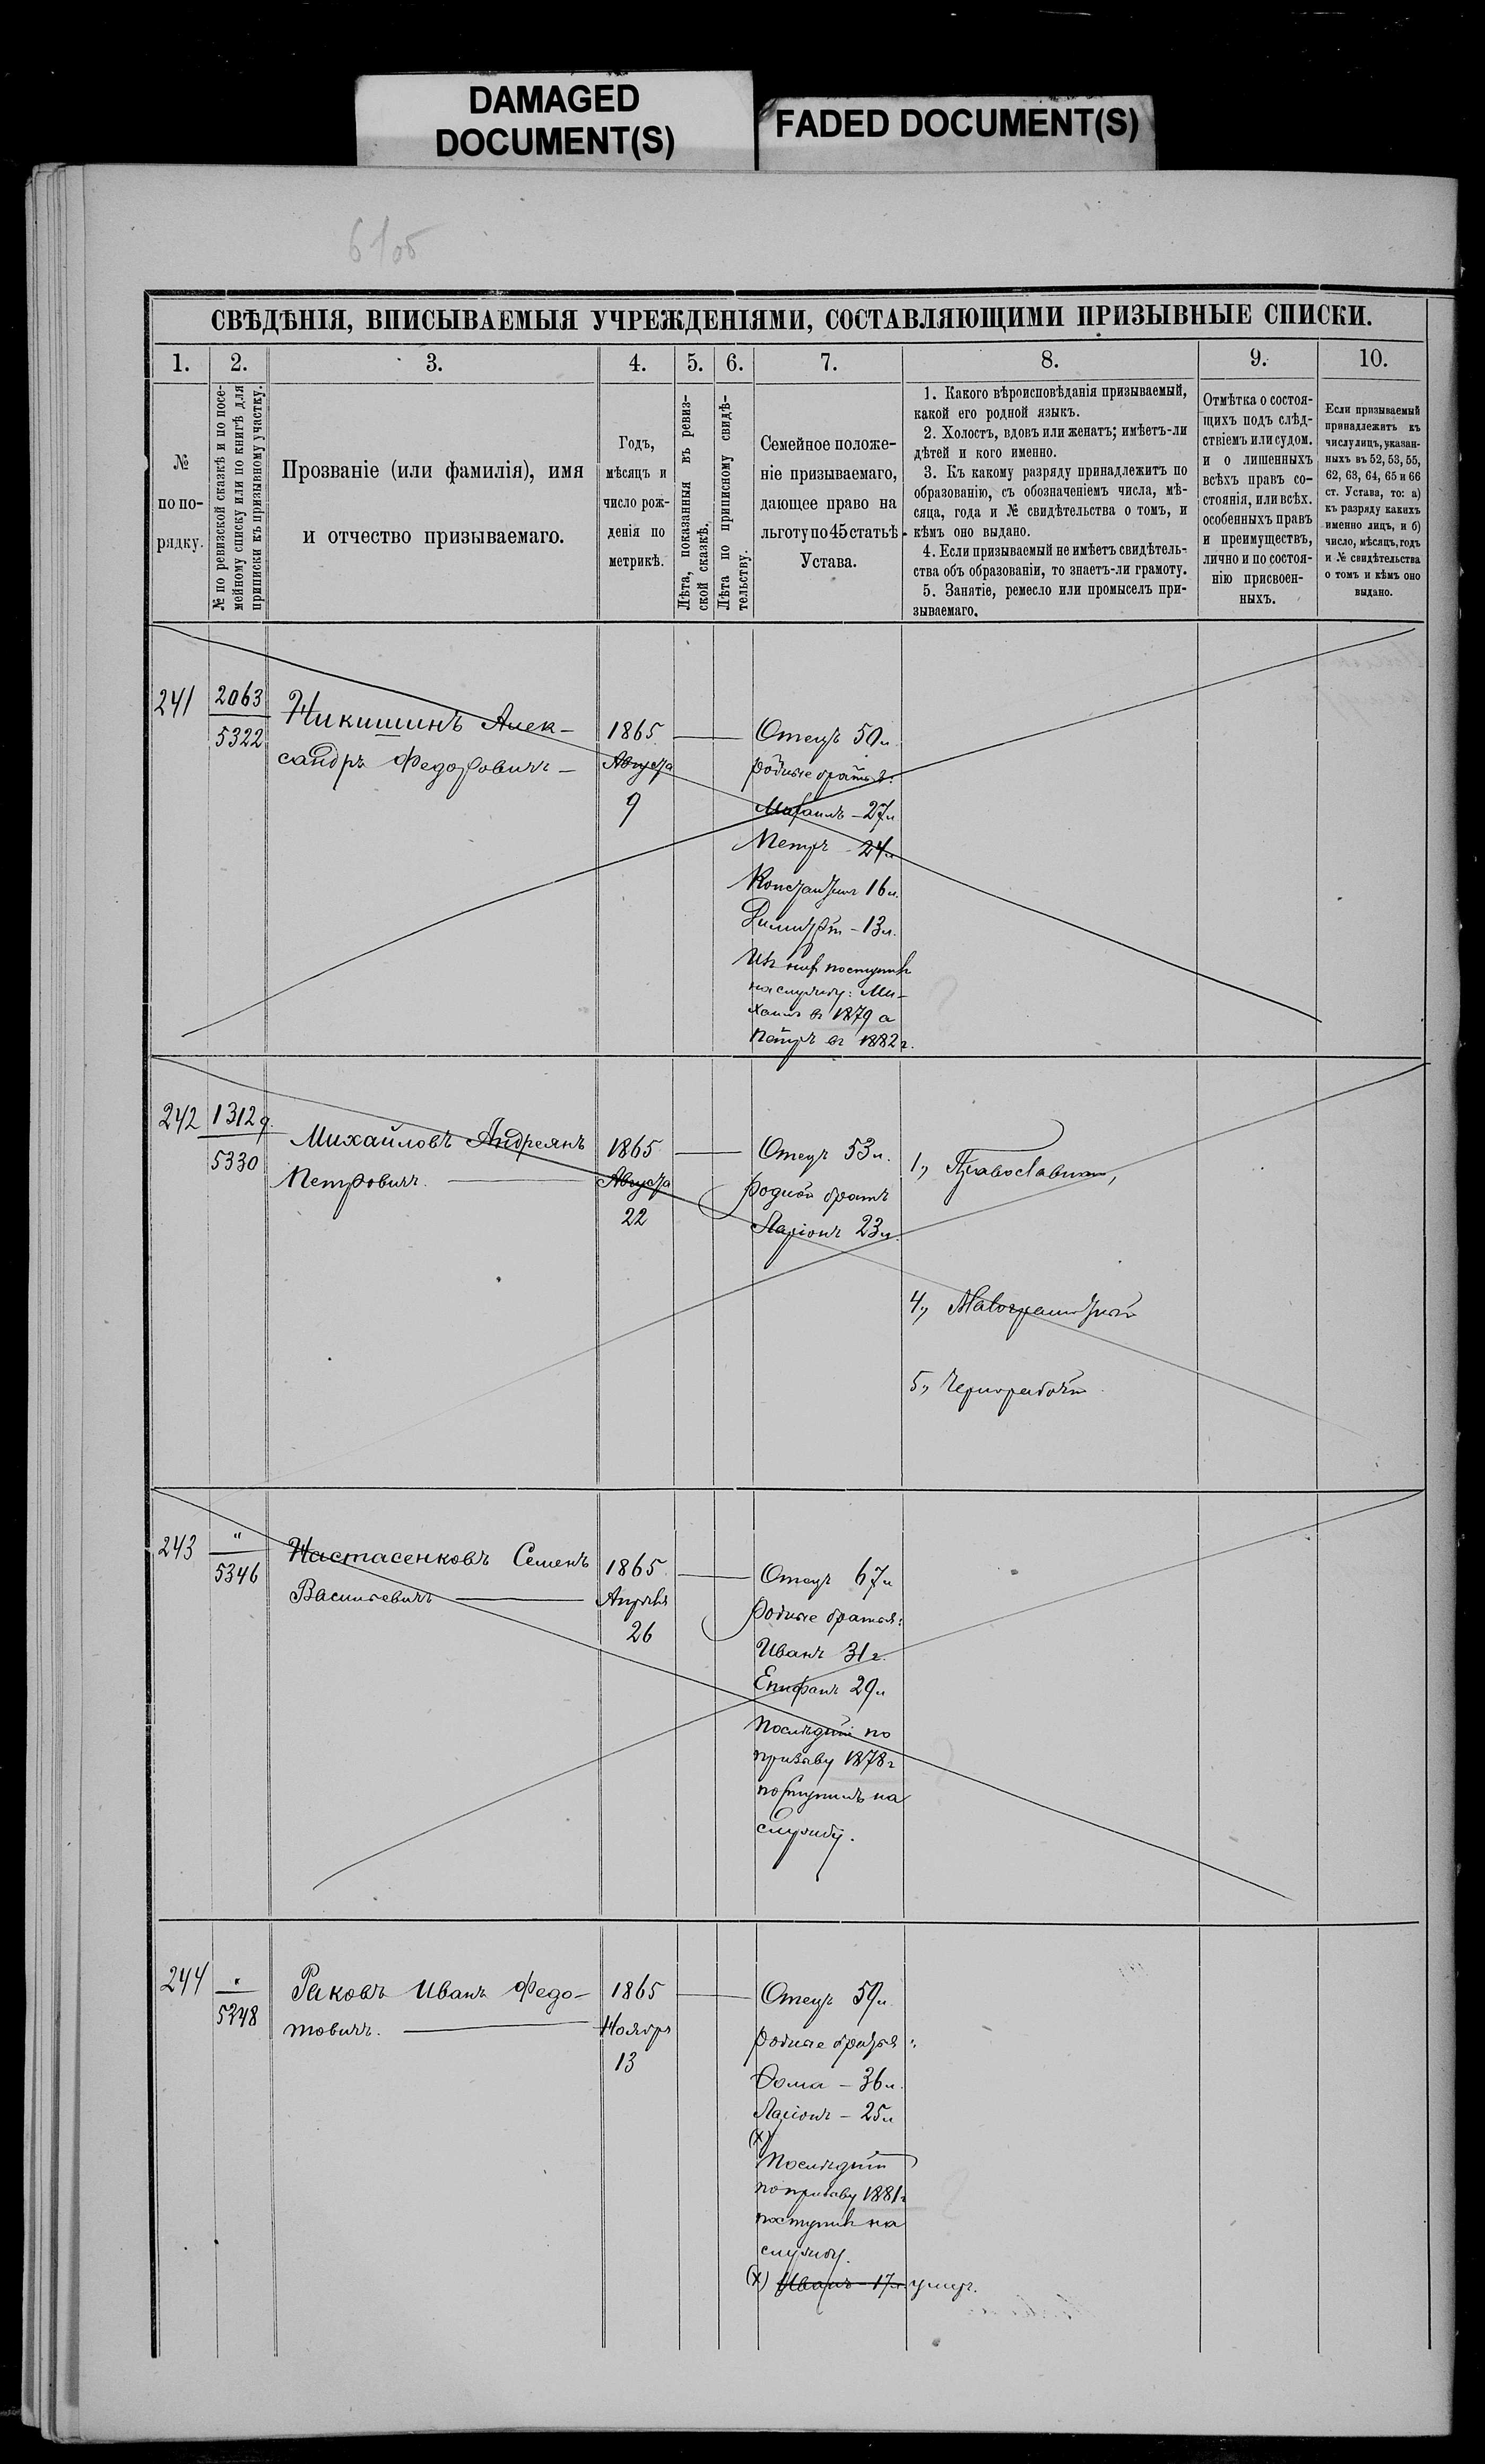 DAMAGED
DOCUMENT(S)
FADED DOCUMENT(S)
61об
СВѢДѢНІЯ, ВПИСЫВАЕМЫЯ УЧРЕЖДЕНІЯМИ, СОСТАВЛЯЮЩИМИ ПРИЗЫВНЫЕ СПИСКИ.
1.
2.
3.
4.
5.
6.
7.
8.
9.
10.
№
по по-
рядку.
№ по ревизской сказкѣ и по посе-
мейному списку или по книгѣ для
приписки къ призывному участку.
Прозваніе (или фамилія), имя
и отчество призываемаго.
Годъ,
мѣсяцъ и
число рож-
денія по
метрикѣ.
Лѣта, показанныя въ ревиз-
ской сказкѣ.
Лѣта по приписному свидѣ-
тельству.
Семейное положе-
ніе призываемаго,
дающее право на
льготу по 45 статьѣ
Устава.
1. Какого вѣроисповѣданія призываемый,
какой его родной языкъ.
2. Холостъ, вдовъ или женатъ; имѣетъ-ли
дѣтей и кого именно.
3. Къ какому разряду принадлежитъ по
образованію, съ обозначеніемъ числа, мѣ-
сяца, года и № свидѣтельства о томъ, и
кѣмъ оно выдано.
4. Если призываемый не имѣетъ свидѣтель-
ства объ образованіи, то знаетъ-ли грамоту.
5. Занятіе, ремесло или промыселъ при-
зываемаго.
Отмѣтка о состоя-
щихъ подъ слѣд-
ствіемъ или судом.
и о лишенныхъ
всѣхъ правъ со-
стоянія, или всѣх.
особенныхъ правъ
и преимуществъ,
лично и по состоя-
нію присвоен-
ныхъ.
Если призываемый
принадлежитъ къ
числу лицъ, указан-
ныхъ въ 52, 53, 55,
62, 63, 64, 65 и 66
ст. Устава, то: а)
къ разряду какихъ
именно лицъ, и б)
число, мѣсяцъ, годъ
и № свидѣтельства
о томъ и кѣмъ оно
выдано.
241
2063
5322
Никишинъ Алек-
сандръ Федоровичъ –
1865
Августа
9
Отецъ 50 л.
родные братья:
Михаилъ – 27 л
Петръ – 24 л
Константинъ 16 л.
Димитрій – 13 л.
Изъ них поступили
на службу: Ми-
хаилъ въ 1879 а
Петръ въ 1882 г.
242
1312 д.
5330
Михайловъ Андреянъ
Петровичъ.
1865
Августа
22
Отецъ 53 л.
родной братъ
Ларіонъ 23 л.
1, Православный,
4, Малограмотный
5, Чернорабочій
243
"
5346
Настасенковъ Семенъ
Васильевичъ
1865
Апрѣля
26
Отецъ 67 л
родные братья:
Иванъ 31 г.
Епифанъ 29 л
Послѣдній по
призыву 1878 г
поступилъ на
службу.
244
"
5348
Раковъ Иванъ Федо-
товичъ.
1865
Ноября
13
Отецъ 59 л.
родные братья:
Фома – 36 л.
Ларіонъ – 25 л
(х)
Послѣдній
по призыву 1881 г
поступилъ на
службу.
(х) Иванъ – 17 л. умеръ.